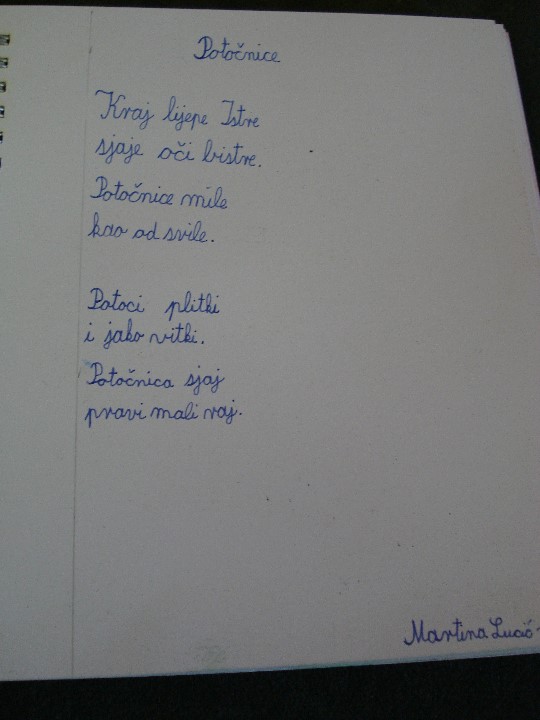 Potočnice
Kraj lijepe Istre
sjaje oči bistre.
Potočnice mile
kao od svile.
Potoci plitki
i jako vitki.
Potočnica sjaj
pravi mali raj.
Martina